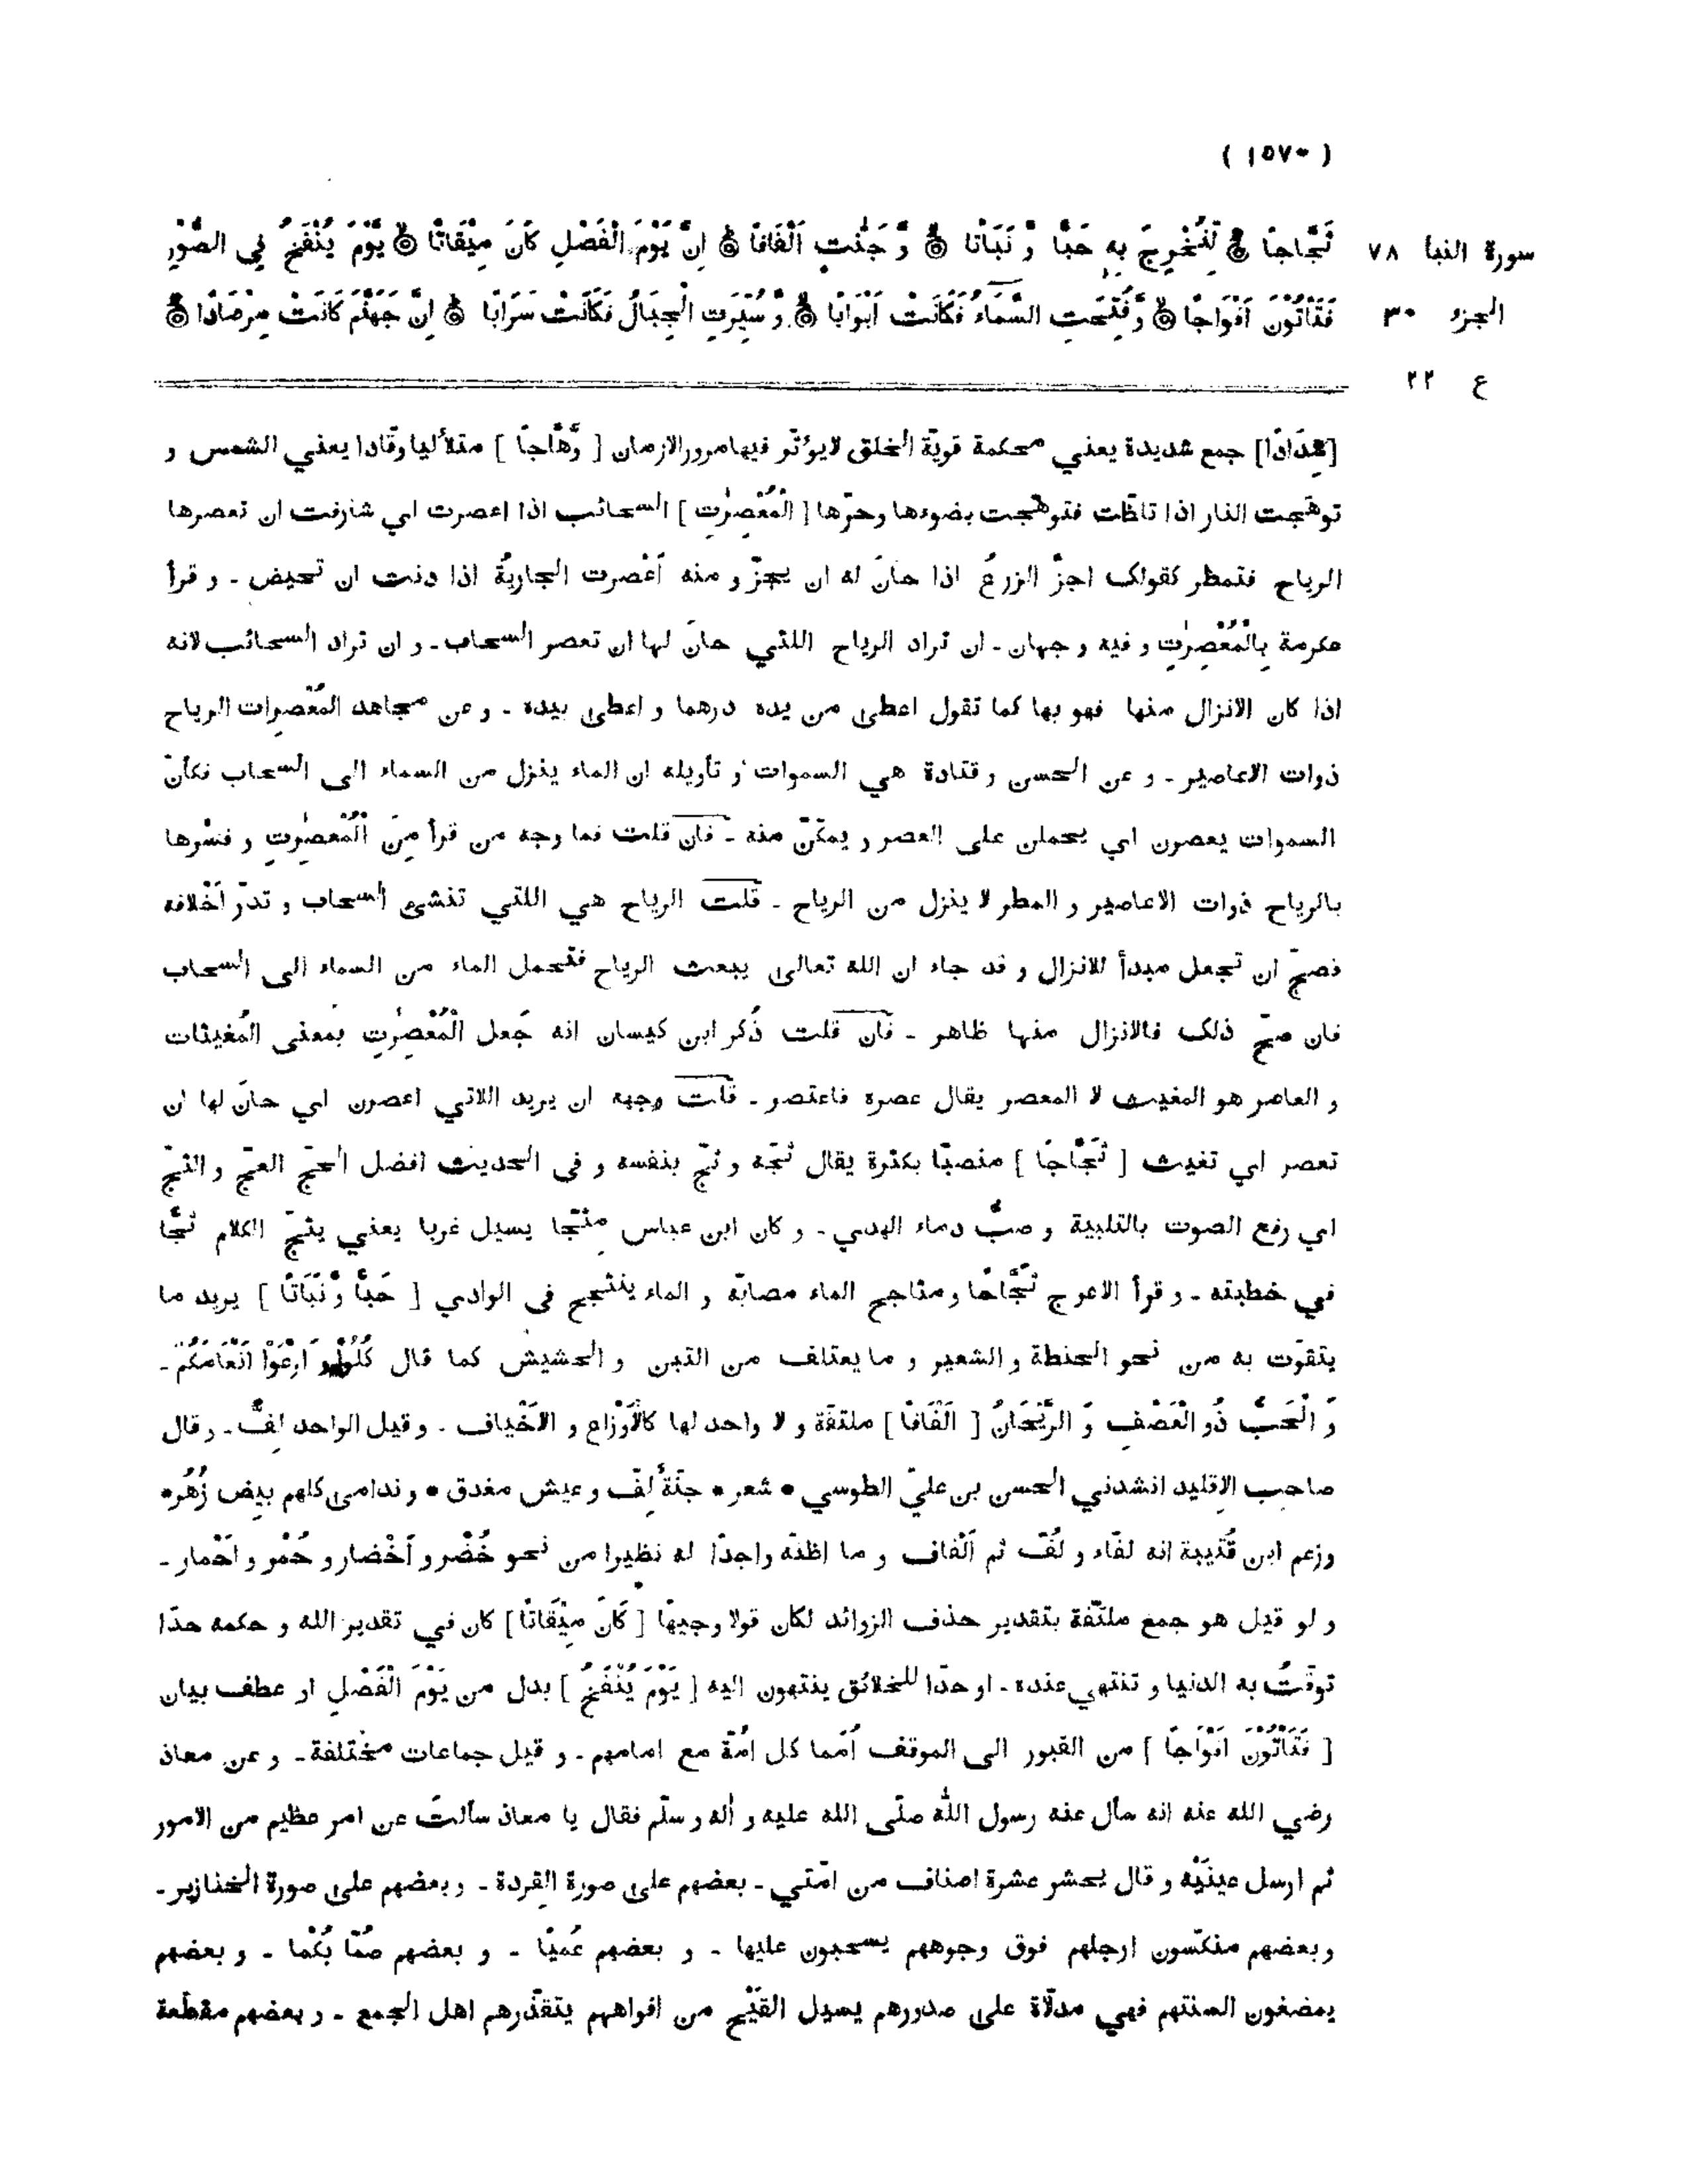 ( ١٥٧٠ )
سورة النبا ٧٨
ثَجَّاجًا ۞ لِّنُخْرِجَ بِهِ حَبًّا وَّ نَبَاتًا ۞ وَّ جَنّٰتٍ اَلْفَافًا ۞ اِنَّ يَوْمَ الْفَصْلِ كَانَ مِيْقَاتًا ۞ يَّوْمَ يُنْفَخُ فِي الصُّوْرِ
الجزء ٣٠
فَتَاْتُوْنَ اَفْوَاجًا ۞ وَّفُتِحَتِ السَّمَاءُ فَكَانَتْ اَبْوَابًا ۞ وَّ سُيِّرَتِ الْجِبَالُ فَكَانَتْ سَرَابًا ۞ اِنَّ جَهَنَّمَ كَانَتْ مِرْصَادًا ۞
ع ٢٢
[شِدَادًا] جمع شديدة يعني محكمة قويّة الخلق لايؤثّر فيهامرورالازمان [ وَّهَّاجًا ] متلألياوقّادا يعني الشمس و
توهّجت النار اذا تلظّت فتوهّجت بضوءها وحرّها [ الْمُعْصِرٰتِ ] السحائب اذا اعصرت اي شارفت ان تعصرها
الرياح فتمطر كقولك اجزّ الزرعُ اذا حانَ له ان يجزّ و منه اَعْصرت الجاريةُ اذا دنت ان تحيض - و قرأ
عكرمة بِالْمُعْصِرٰتِ و فيه وجهان - ان تراد الرياح اللتي حانَ لها ان تعصر السحاب - و ان تراد السحائب لانه
اذا كان الانزال منها فهو بها كما تقول اعطى من يده درهما و اعطى بيده - و عن مجاهد المُعْصِرات الرياح
ذوات الاعاصير - و عن الحسن و قتادة هي السموات و تأويله ان الماء ينزل من السماء الى السحاب فكأنّ
السموات يعصرن اي يحملن على العصر و يمكّنّ منه - فان قلت فما وجه من قرأ مِنَ الْمُعْصِرٰتِ و فسّرها
بالرياح ذوات الاعاصير و المطر لا ينزل من الرياح - قلت الرياح هي اللتي تنشئ السحاب و تدرّ اَخْلافه
فصحّ ان تجعل مبدأ للانزال و قد جاء ان الله تعالى يبعث الرياح فتحمل الماء من السماء الى السحاب
فان صحّ ذلك فالانزال منها ظاهر - فان قلت ذُكر ابن كيسان انه جَعل الْمُعْصِرٰتِ بمعنى المُغيثات
و العاصر هو المغيث لا المعصر يقال عصره فاعتصر - قلت وجهه ان يريد اللاتي اعصرن اي حانَ لها ان
تعصر اي تغيث [ ثَجَّاجًا ] منصبّا بكثرة يقال ثجّه و ثجّ بنفسه و فى الحديث افضل الحجّ العجّ و الثجّ
اي رفع الصوت بالتلبية و صبُّ دماء الهدي - و كان ابن عباس مِثَجّا يسيل غربا يعني يثجّ الكلام ثجًّا
في خطبته - و قرأ الاعرج ثَجَّاحًا ومثاجح الماء مصابّه و الماء ينثجح فى الوادي [ حَبًّا وَّنَبَاتًا ] يريد ما
يتقوّت به من نحو الحنطة و الشعير و ما يعتلف من التبن و الحشيش كما قال كُلُوْا وَ ارْعَوْا اَنْعَامَكُمْ -
وَ الْحَبُّ ذُو الْعَصْفِ وَ الرَّيْحَانُ [ اَلْفَافًا ] ملتفّة و لا واحد لها كالْاَوْزاع و الاَخْياف - وقيل الواحد لِفٌّ - وقال
صاحب الاِقليد انشدني الحسن بن عليّ الطوسي • شعر • جنّةٌ لِفّ و عيش مغدق • و ندامى كلهم بِيض زُهُر •
وزعم ابن قُتيبة انه لفّاء و لُفّ ثم اَلْفاف و ما اظنّه واجدًا له نظيرا من نحو خُضْر و اَخْضار و حُمْر و احْمار -
و لو قيل هو جمع ملتّفة بتقدير حذف الزوائد لكان قولا وجيهًا [ كَانَ مِيْقَاتًا ] كان في تقدير الله و حكمه حدّا
توقّتُ به الدنيا و تنتهي عنده - او حدّا للخلائق ينتهون اليه [ يَوْمَ يُنْفَخُ ] بدل من يَوْمَ الْفَصْلِ او عطف بيان
[ فَتَاْتُوْنَ اَفْوَاجًا ] من القبور الى الموقف اُمَما كل اُمّة مع امامهم - و قيل جماعات مختلفة - و عن معاذ
رضي الله عنه انه سأل عنه رسول الله صلّى الله عليه و أله و سلّم فقال يا معاذ سألتَ عن امر عظيم من الامور
ثم ارسل عينَيْه و قال يحشر عشرة اصناف من امّتي - بعضهم على صورة القِردة - وبعضهم على صورة الخنازير -
وبعضهم منكّسون ارجلهم فوق وجوههم يسحبون عليها - و بعضهم عُميًا - و بعضهم صُمّا بُكْما - و بعضهم
يمضغون السنتهم فهي مدلّاة على صدورهم يسيل القَيْح من افواههم يتقذّرهم اهل الجمع - و بعضهم مقطّعة